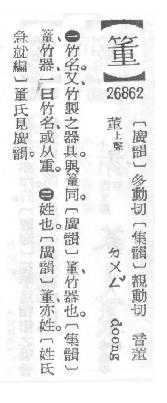 【箽】
26862
〔廣韻〕多動切〔集韻〕覩動切 音董
董上聲 ㄉㄨㄥˇ doong
㊀竹名。又竹製之器具。與同。〔廣韻〕箽、竹器也。〔集韻〕
箽、竹器、一曰竹名、或从重。㊁姓也。〔廣韻〕箽、亦姓。〔姓氏
急就編〕箽氏見廣韻。